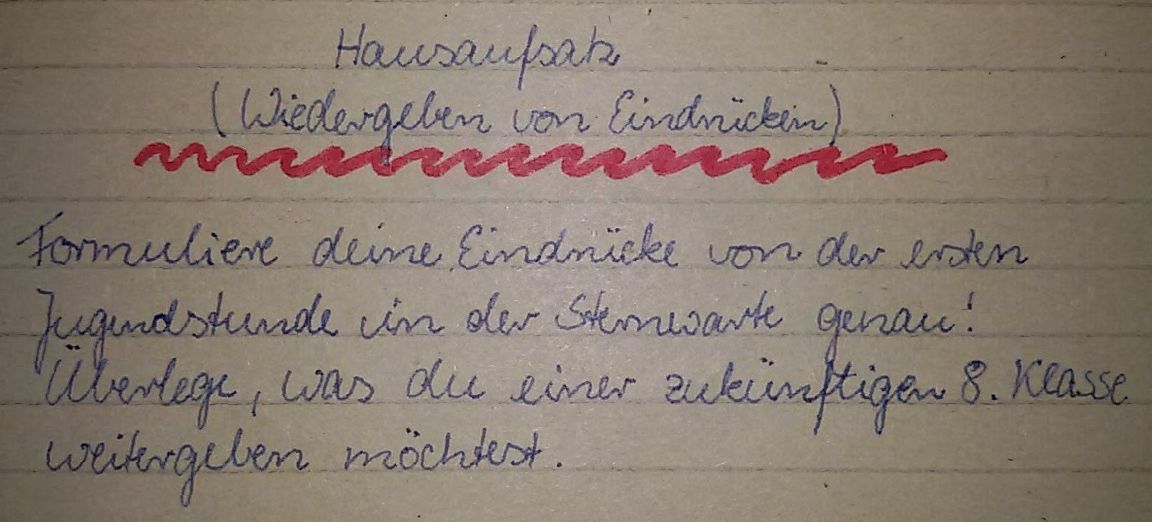 Hausaufsatz
(Wiedergeben von Eindrücken)
Formuliere deine Eindrücke von der ersten
Jugendstunde in der Sternwarte genau!
Überlege, was du einer zukünftigen 8. Klasse
weitergeben möchtest.